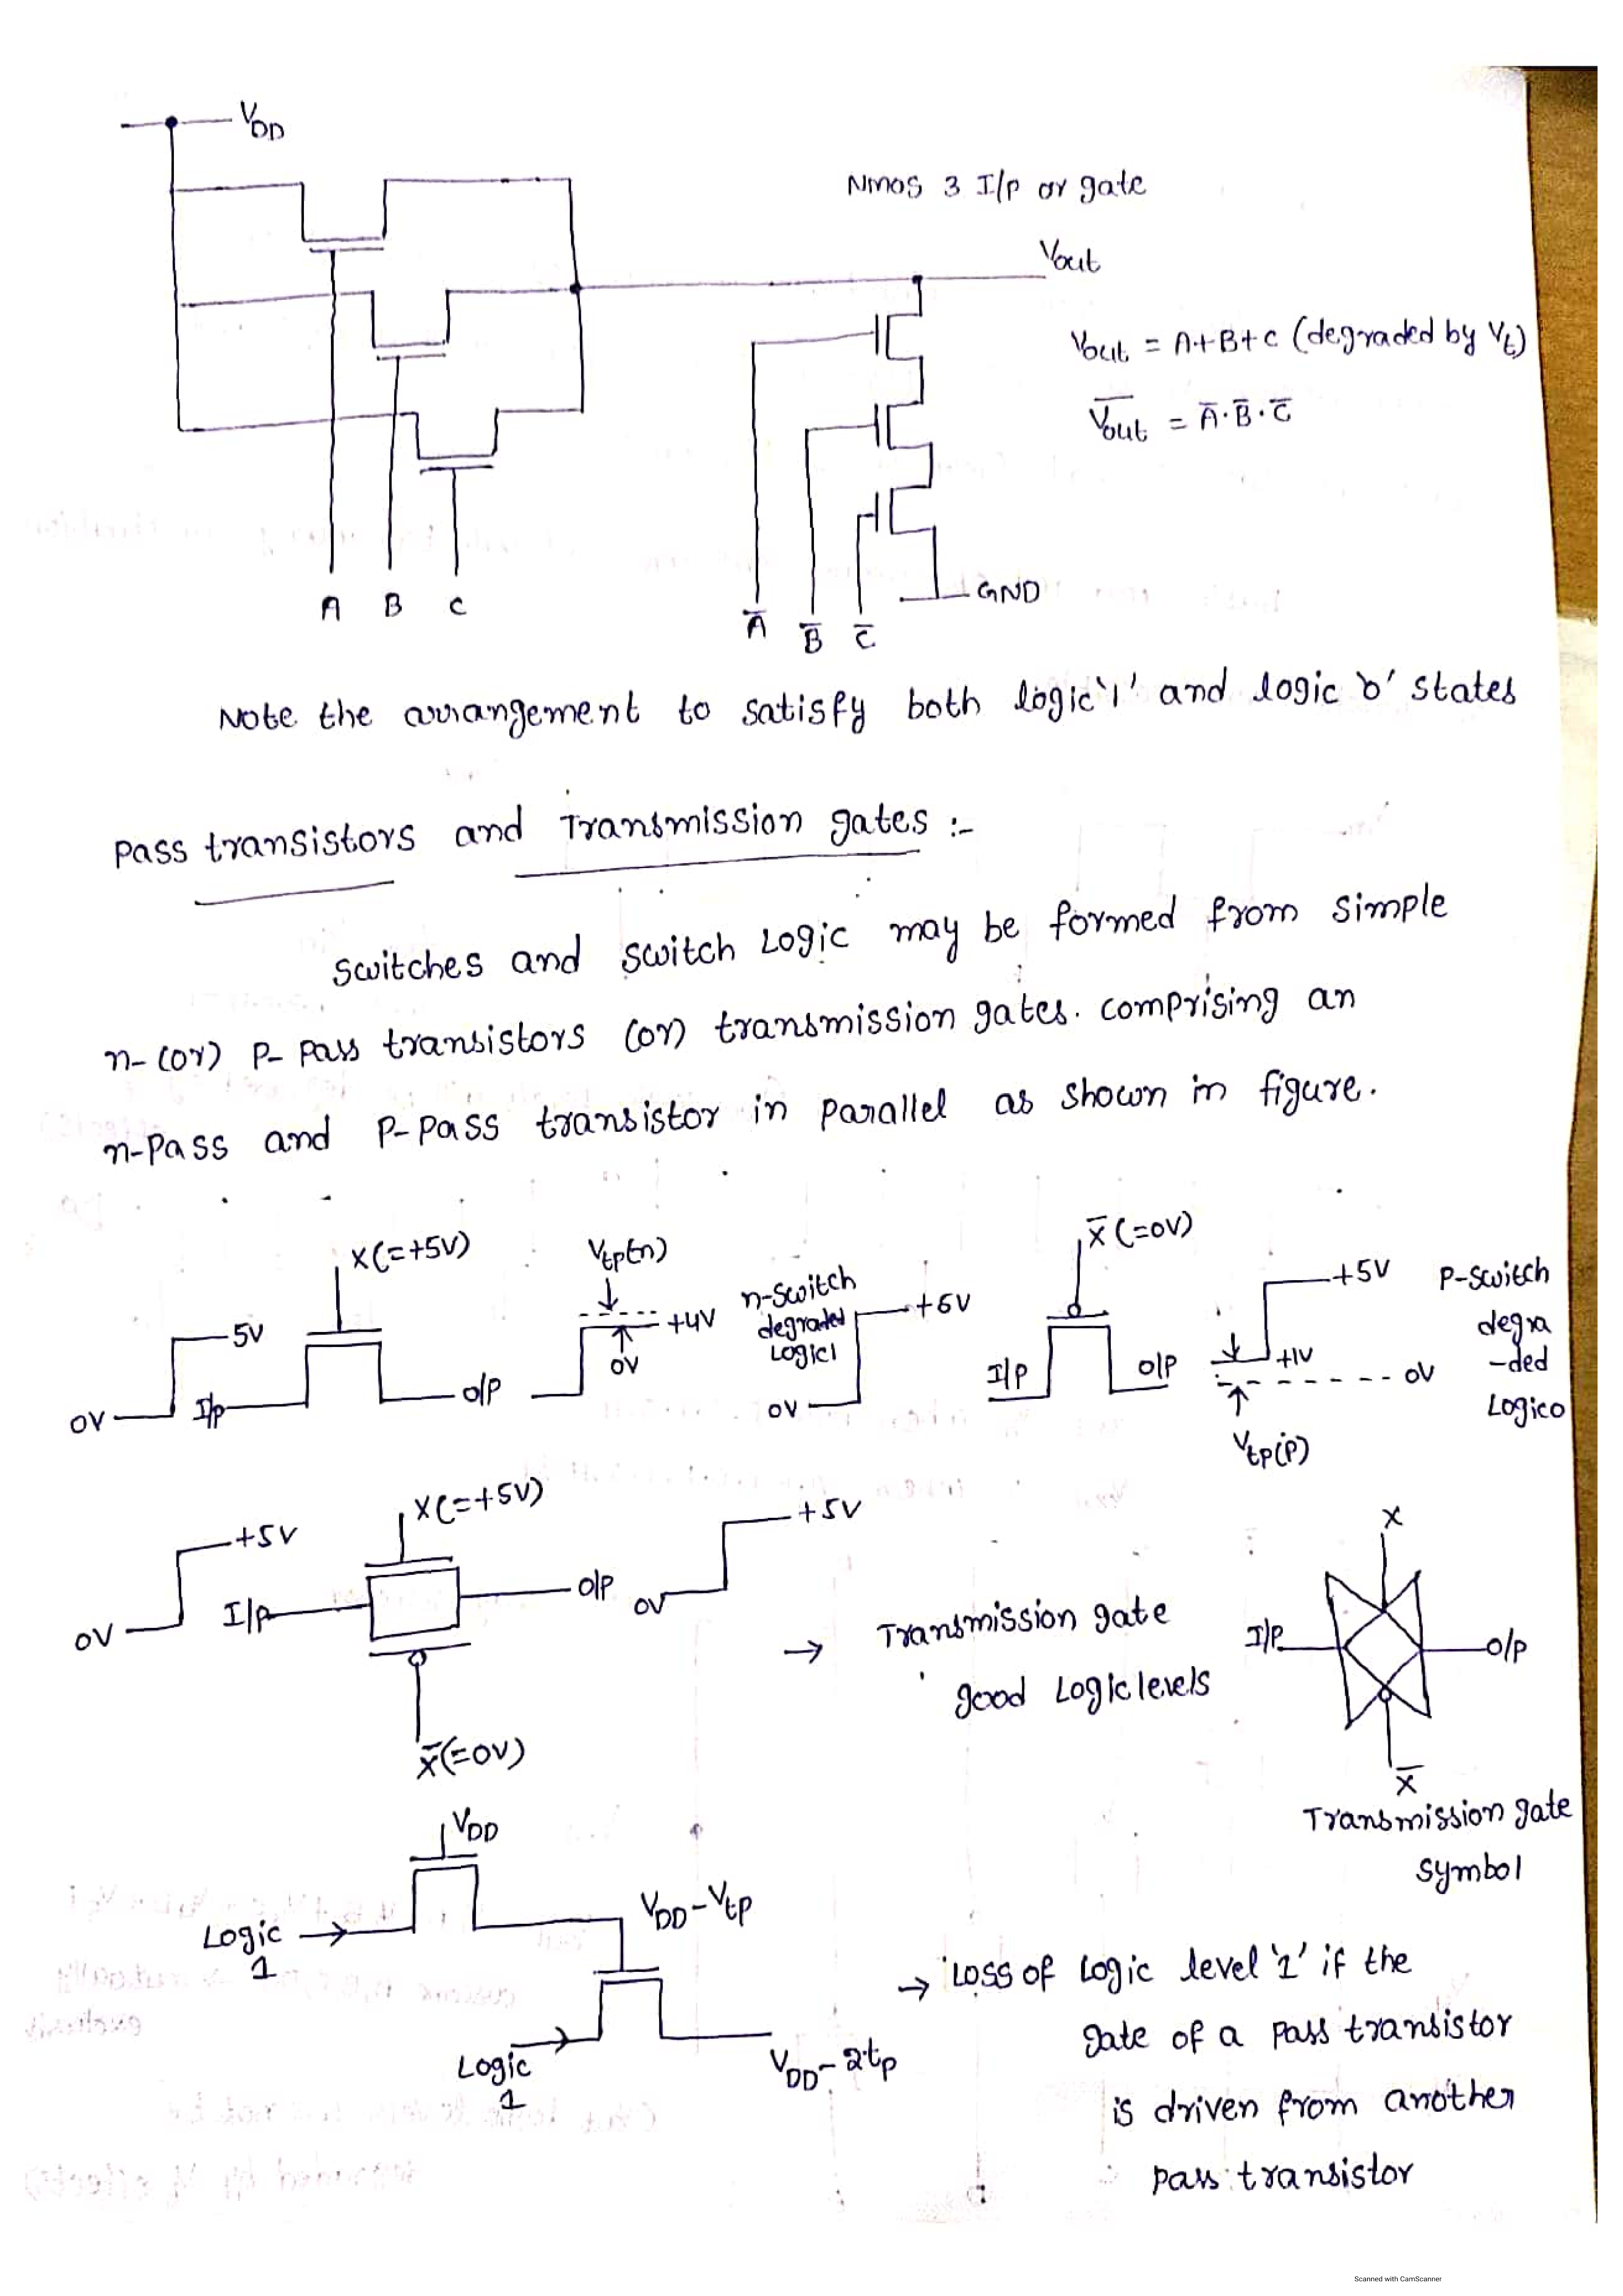 V_DD
Nmos 3 I/p or gate
Vout
Vout = A+B+C (degraded by Vt)
V̅o̅u̅t̅ = A̅·B̅·C̅
GND
A B C
A̅ B̅ C̅
Note the arrangement to satisfy both logic '1' and logic '0' states
Pass transistors and Transmission gates :-
switches and switch Logic may be formed from simple
n- (or) P- pass transistors (or) transmission gates. comprising an
n-Pass and P-Pass transistor in parallel as shown in figure.
X(=+5V)
Vtp(n)
n-switch
degraded
Logic1
5V
0V
I/p
o/p
+4V
0V
+5V
0V
X̅(=0V)
I/P
O/P
+5V
+1V
0V
Vtp(p)
P-switch
degra
-ded
Logic0
X(=+5V)
+5V
0V
I/p
O/P
0V
+5V
X̅(=0V)
→ Transmission gate
good Logic levels
X
I/P
O/P
X̅
Transmission gate
symbol
V_DD
Logic
1
V_DD-Vtp
Logic
1
V_DD-2tp
→ Loss of Logic level '1' if the
gate of a pass transistor
is driven from another
pass transistor
Scanned with CamScanner